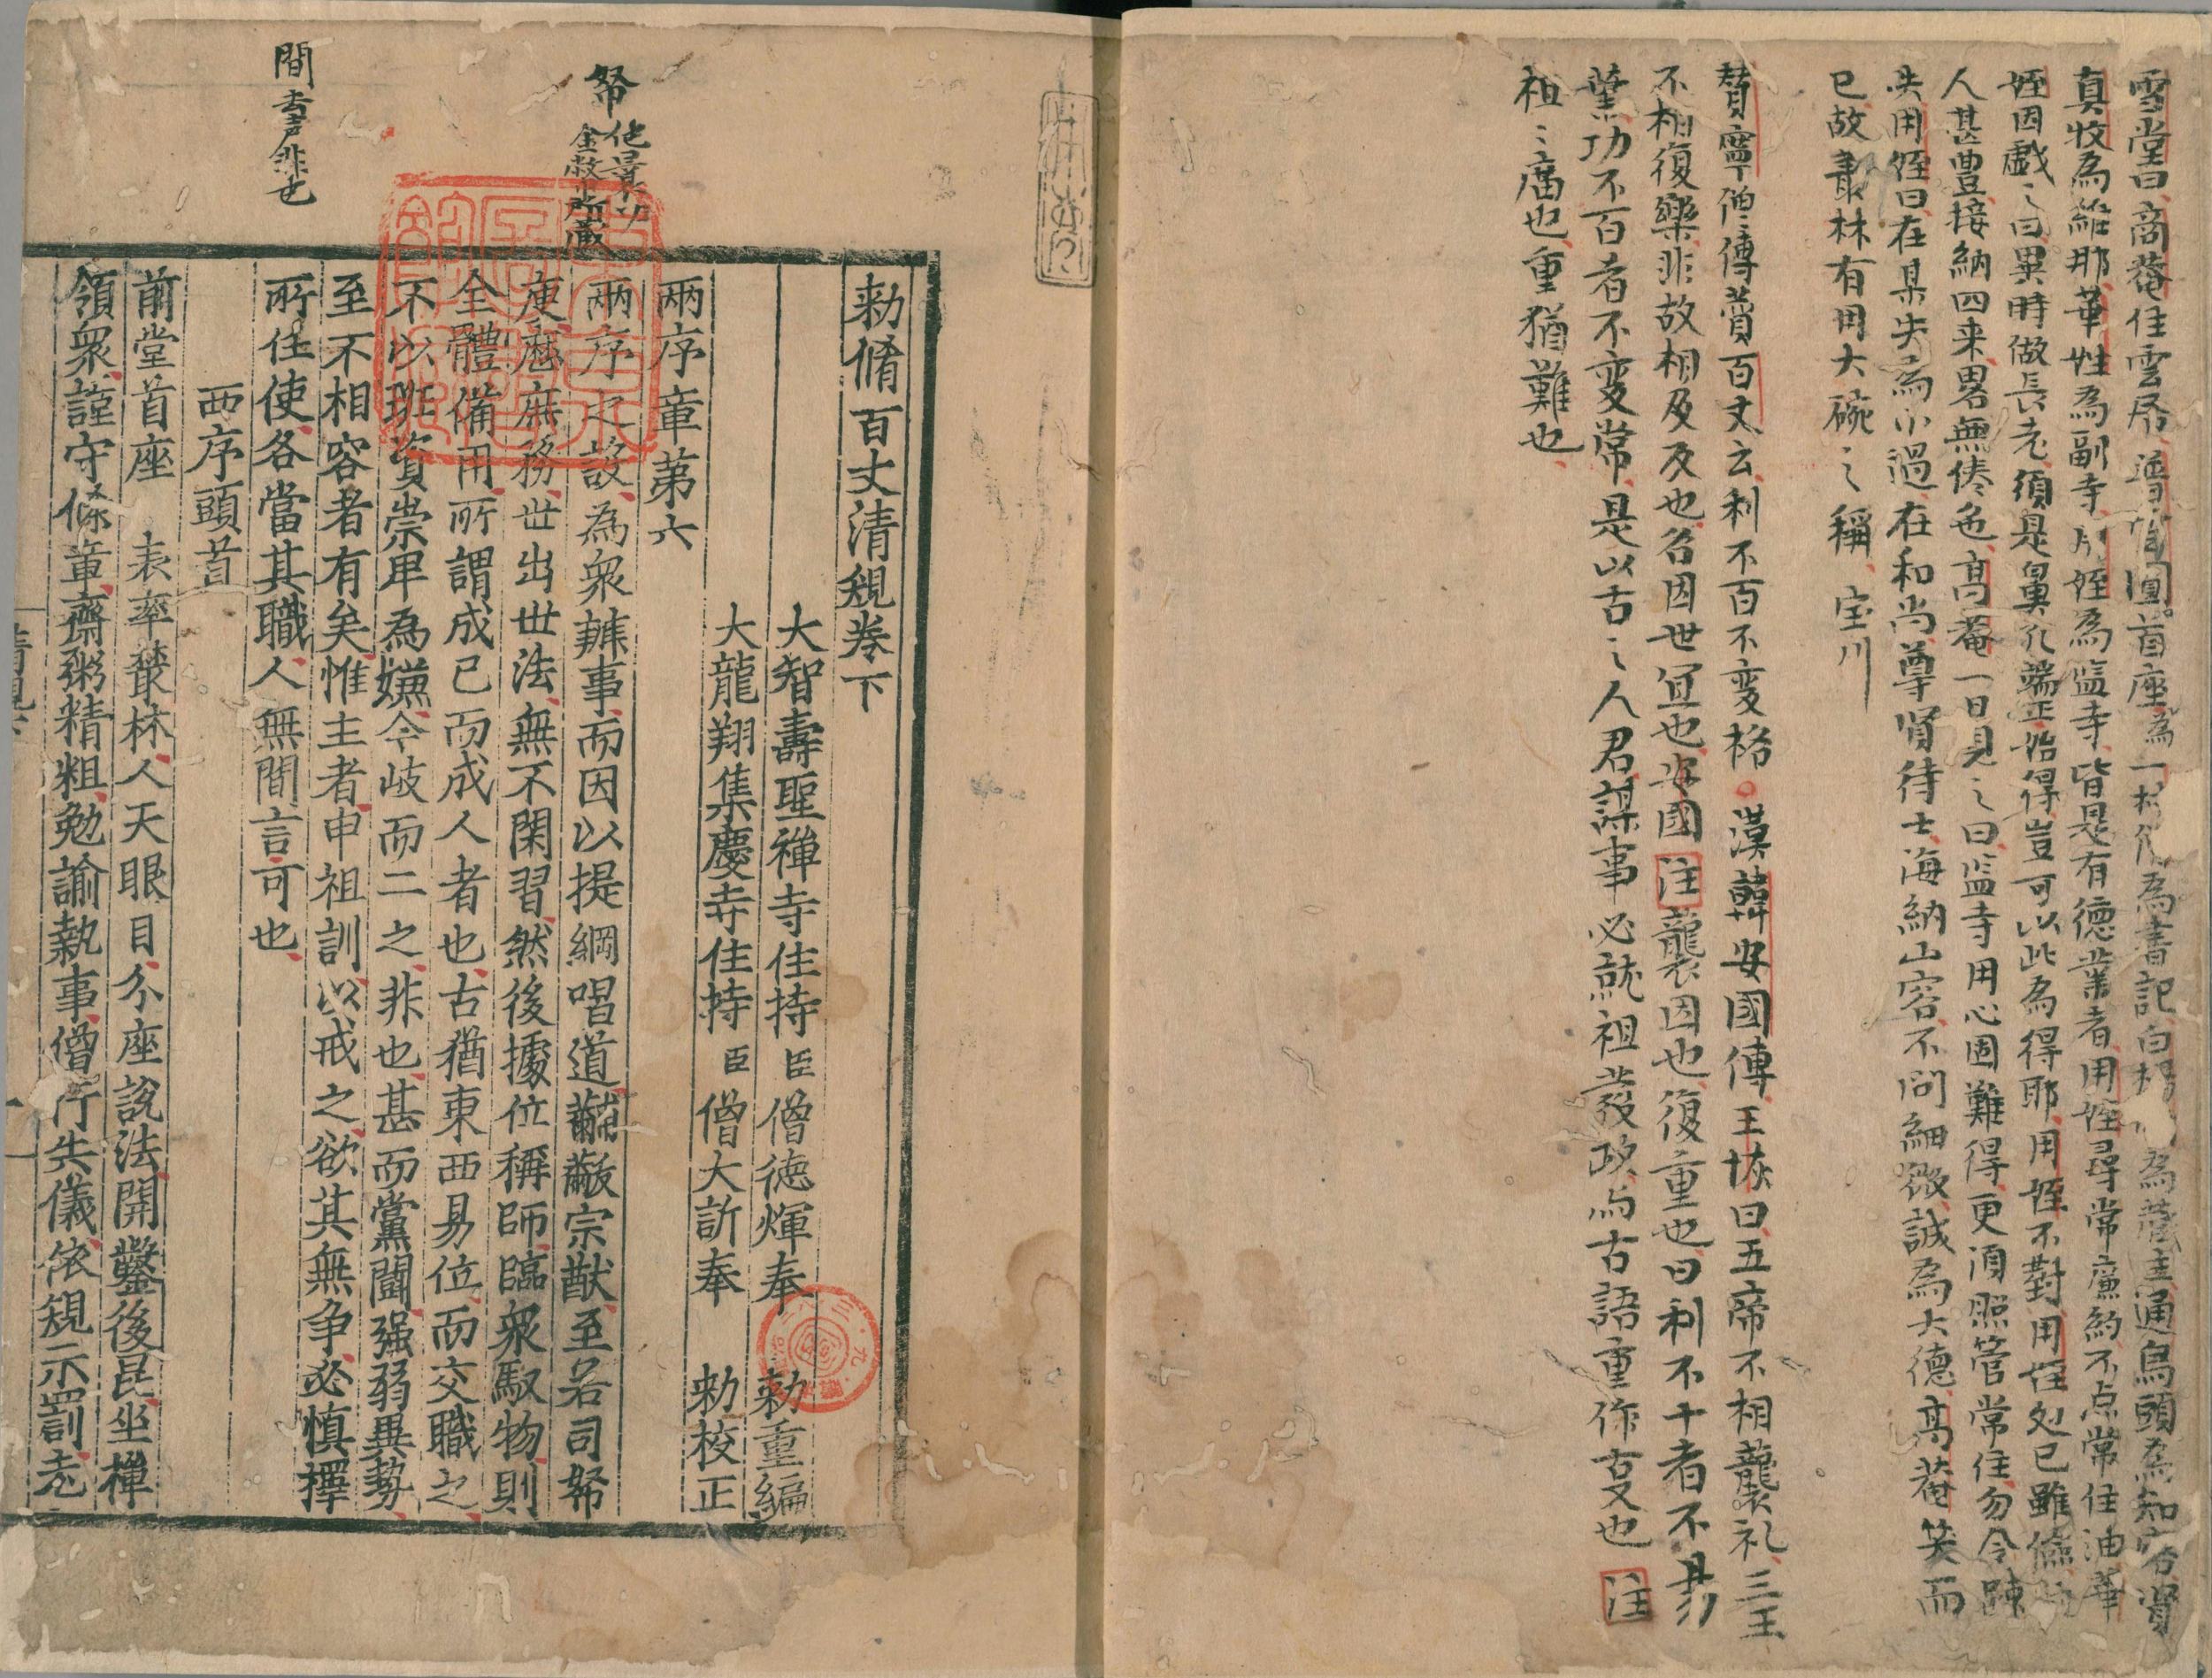 雪堂曰高菴住雲居普雲圓首座為一材僧為書記白楊順為藏主通烏頭為知客賢
真牧為維那華姪為副寺用姪為監寺皆是有德業者用姪尋常廉約不点常住油華
姪因戯之曰異時做長老須是鼻孔端正始得豈可以此為得耶用姪不對用姪処已雖儉与
人甚豊接納四来畧無倦色高菴一日見之曰监寺用心固難得更須照管常住勿令踈
失用姪曰在某失為小過在和尚尊贤待士海納山容不问細微誠為大德高菴笑而
已故叢林有用大碗之稱 宝川
賛寧僧傳賛百丈云利不百不変格。漢韓安國傳王恢曰五帝不相襲礼三王
不相復樂非故相及反也各因世宜也安國注襲因也復重也曰利不十者不易
業功不百者不変常是以古之人君謀事必就祖發政占古語重作㕝也注
祖之庿也重猶難也
帑 他曩切
金敝所蔵
間 去声非也
勅脩百丈清規卷下
大智壽聖禪寺住持臣僧德煇奉 勅重編
大龍翔集慶寺住持臣僧大訢奉 勅校正
兩序章第六
兩序之設為衆辨事而因以提綱唱道黼黻宗猷至若司帑
庾歷庶務世出世法無不閑習然後據位稱師臨衆馭物則
全體備用所謂成已而成人者也古猶東西易位而交職之
不以班資崇卑為嫌今岐而二之非也甚而黨鬪强弱異勢
至不相容者有矣惟主者申祖訓以戒之欲其無争必慎擇
所任使各當其職人無間言可也
西序頭首
前堂首座 表率叢林人天眼目分座說法開鑿後昆坐禪
領衆謹守條章齋粥精粗勉諭執事僧行失儀依規示罰老
清規下
一